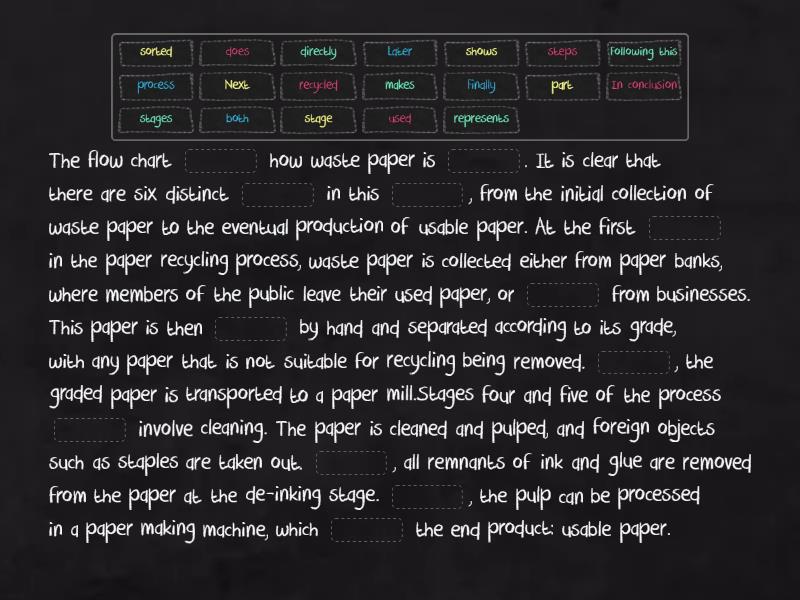 sorted does directly Later shows steps Following this
process Next recycled makes Finally part In conclusion
stages both stage used represents
The flow chart how waste paper is . It is clear that
there are six distinct in this , from the initial collection of
waste paper to the eventual production of usable paper. At the first
in the paper recycling process, waste paper is collected either from paper banks,
where members of the public leave their used paper, or from businesses.
This paper is then by hand and separated according to its grade,
with any paper that is not suitable for recycling being removed. , the
graded paper is transported to a paper mill.Stages four and five of the process
involve cleaning. The paper is cleaned and pulped, and foreign objects
such as staples are taken out. , all remnants of ink and glue are removed
from the paper at the de-inking stage. , the pulp can be processed
in a paper making machine, which the end product: usable paper.